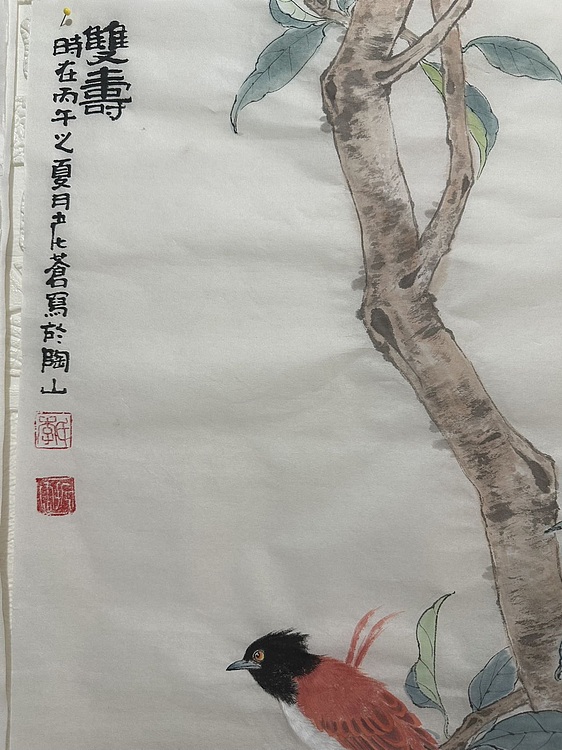 雙壽
時在丙午之夏月
蒼寫於陶山